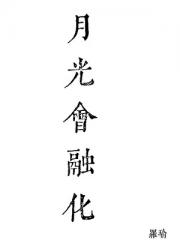 月光會融化
羅喻